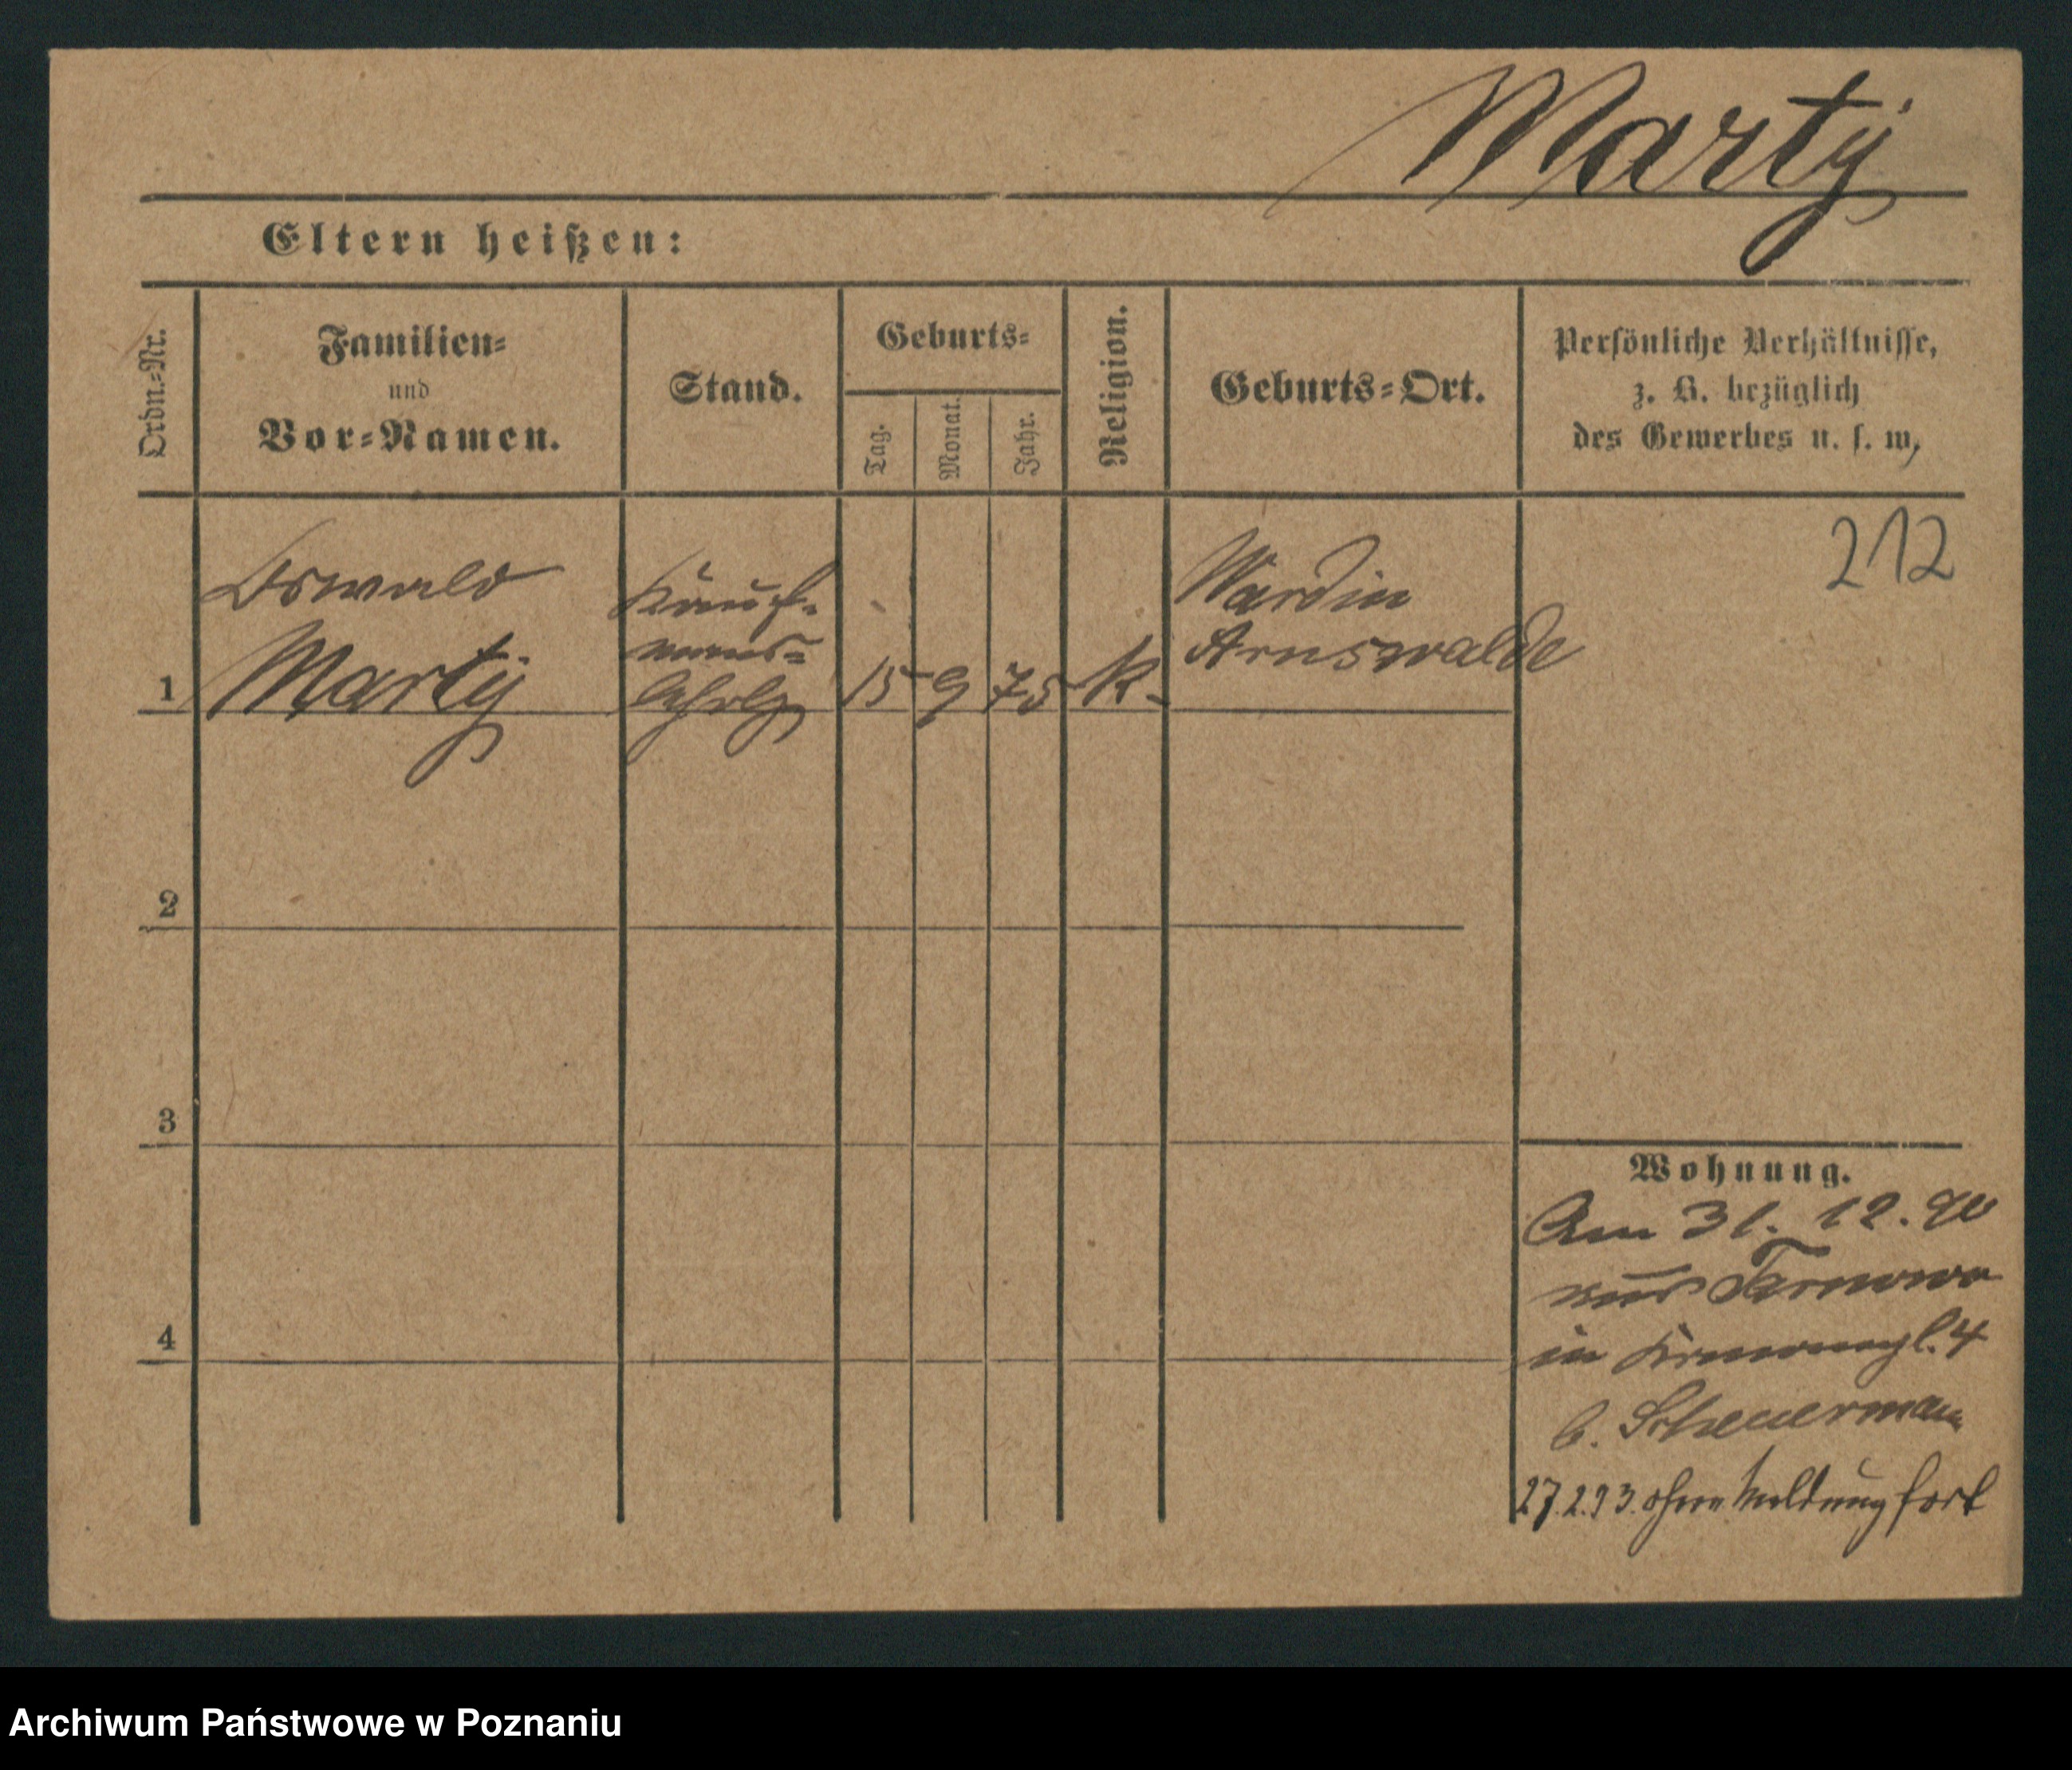 Martÿ
Eltern heißen:
Ordn.-Nr.
Familien-
und
Vor-Namen.
Stand.
Geburts-
Tag.
Monat.
Jahr.
Religion.
Geburts-Ort.
Persönliche Verhältnisse,
z. B. bezüglich
des Gewerbes u. s. w.
1
Oswald
Martÿ
Kauf-
manns-
15 9 75 K.
Wardin
Arnswalde
212
2
3
4
Wohnung.
Am 31. 12. 90
aus Tarnowo
in
b. Scheuermann
27.2.93. ohne Meldung fort
Archiwum Państwowe w Poznaniu